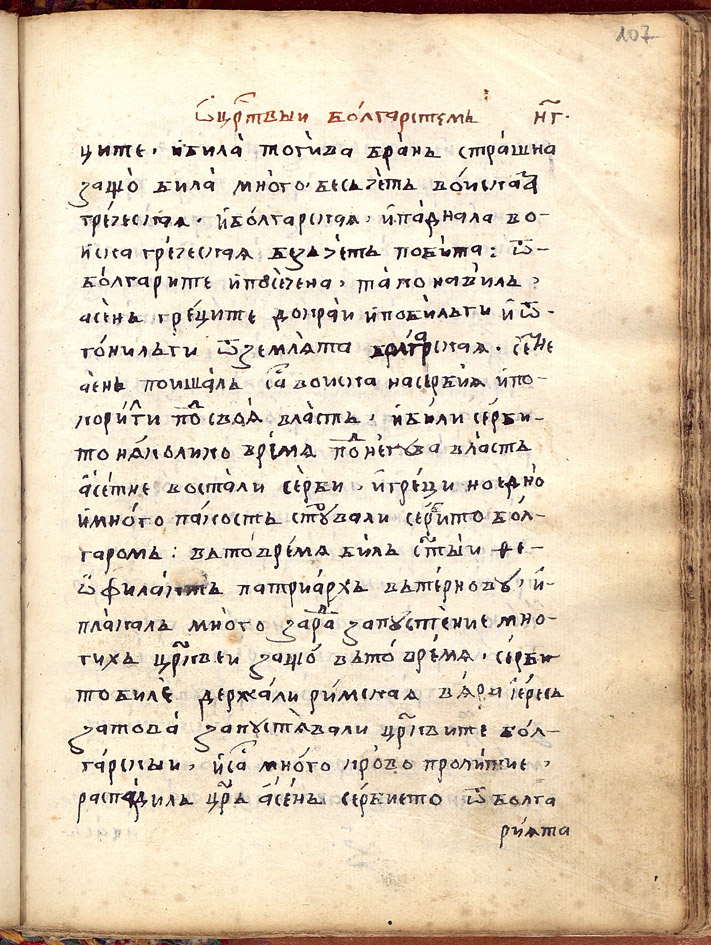 107
Ѿ црⷭ҇твыи бо́лгарстемъ нг҃·
ците· и била̀ тоги́ва бра́нь стра́шна
защо̀ била̀ мно́го· бесъче́тъ во́искаа
гре́ческая· и҆ бо́лгарская· и҆ па́днала во-
иска гре́ческая безъче́тъ поби́та: ѿ-
бо́лгарите и҆ посе́чена· та́ко нави́лъ·
асе́нь гре́ците докра́и и҆ поби́лъги и҆ ѿ-
гони́лъги ѿ земля́та болгарская·
асе́нь поиша́лъ са воиска на се́рбия и҆ по-
кори́ ги поⷣ своя̀ вла́сть· и҆ би́ли се́рби-
то на́колико вре́мя поⷣ него́ва вла́сть
а҆се́тне воста́ли се́рби· и҆ гре́ци ноедно̀
и҆ мно́го па́кость стꙋ́вали се́рбито бо́л-
гаромъ: въто вре́мя би́лъ ст҃ы́и ѳе-
ѡфила́ктъ патриа́рхъ вътерно́вꙋ· и҆-
пла́калъ мно́го зара́ди запꙋсте́ние мно-
гихъ црⷪ҇квеи защо́ въто вре́мя· се́рби
то биле̂ держа́ли ри́мская вя́ра і҆е́ресъ
затова̀ запꙋстя́вали црⷪ҇квите бо́л-
га́рскыи· и҆ са мно́го кро́во проли́тие·
распа́дилъ цр҃ь а҆се́нь се́рбието ѿ болга
рия́та